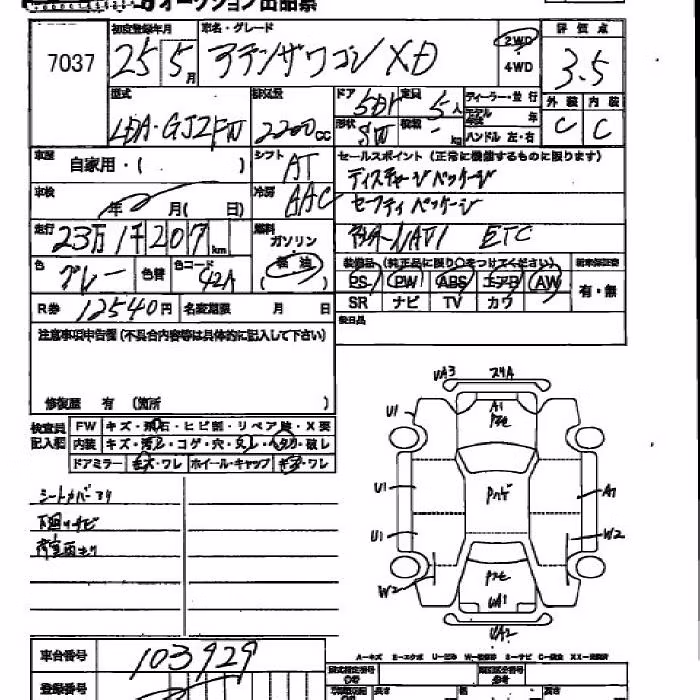 オークション出品票
7037
初度登録年月
25 5月
車名・グレード
アテンザワゴン XD
2WD
4WD
評価点
3.5
型式
LDA-GJ2FW
排気量
2200cc
ドア 5Dr
定員 5人
形状 SW
積載 - kg
ディーラー・並行
モデル年式 年
ハンドル 左・右
外装 内装
C C
車歴
自家用・( )
シフト
AT
セールスポイント(正常に機能するものに限ります)
ディスチャージパッケージ
セーフティパッケージ
NAVI ETC
車検
年 月( 日)
冷房
AAC
走行
23万1千207km
燃料
ガソリン
軽油
色
グレー
色替
色コード
42A
装備品(純正品に限り○をつけてください)
新車保証書
PS PW ABS エアB AW
SR ナビ TV カワ
有・無
R券 12540円
名変期限 月 日
後日品
注意事項申告欄(不具合内容等は具体的に記入して下さい)
修復歴 有 (箇所
検査員記入欄
FW キズ・飛石・ヒビ割・リペア跡・X要
内装 キズ・汚レ・コゲ・穴・スレ・ヘタリ・破レ
ドアミラー キズ・ワレ ホイール・キャップ キズ・ワレ
シートカバースリ
下廻りサビ
荷室面キリ
UA3
スリA
U1
A1
Pモモ
U1
Pハゲ
A1
U1
W2
W2
UA1
UA2
A-キズ E-エクボ U-凹み W-波修理 S-サビ C-腐食 XX-交換済
車台番号
103929
登録番号